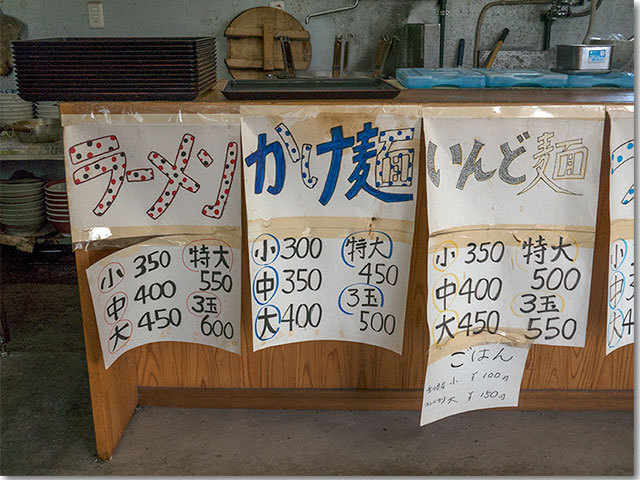 ラーメン
小 350
中 400
大 450
特大
550
3玉
600
かけ麺
小 300
中 350
大 400
特大
450
3玉
500
いんど麺
小 350
中 400
大 450
特大
500
3玉
550
ごはん
小 ¥100円
大 ¥150円